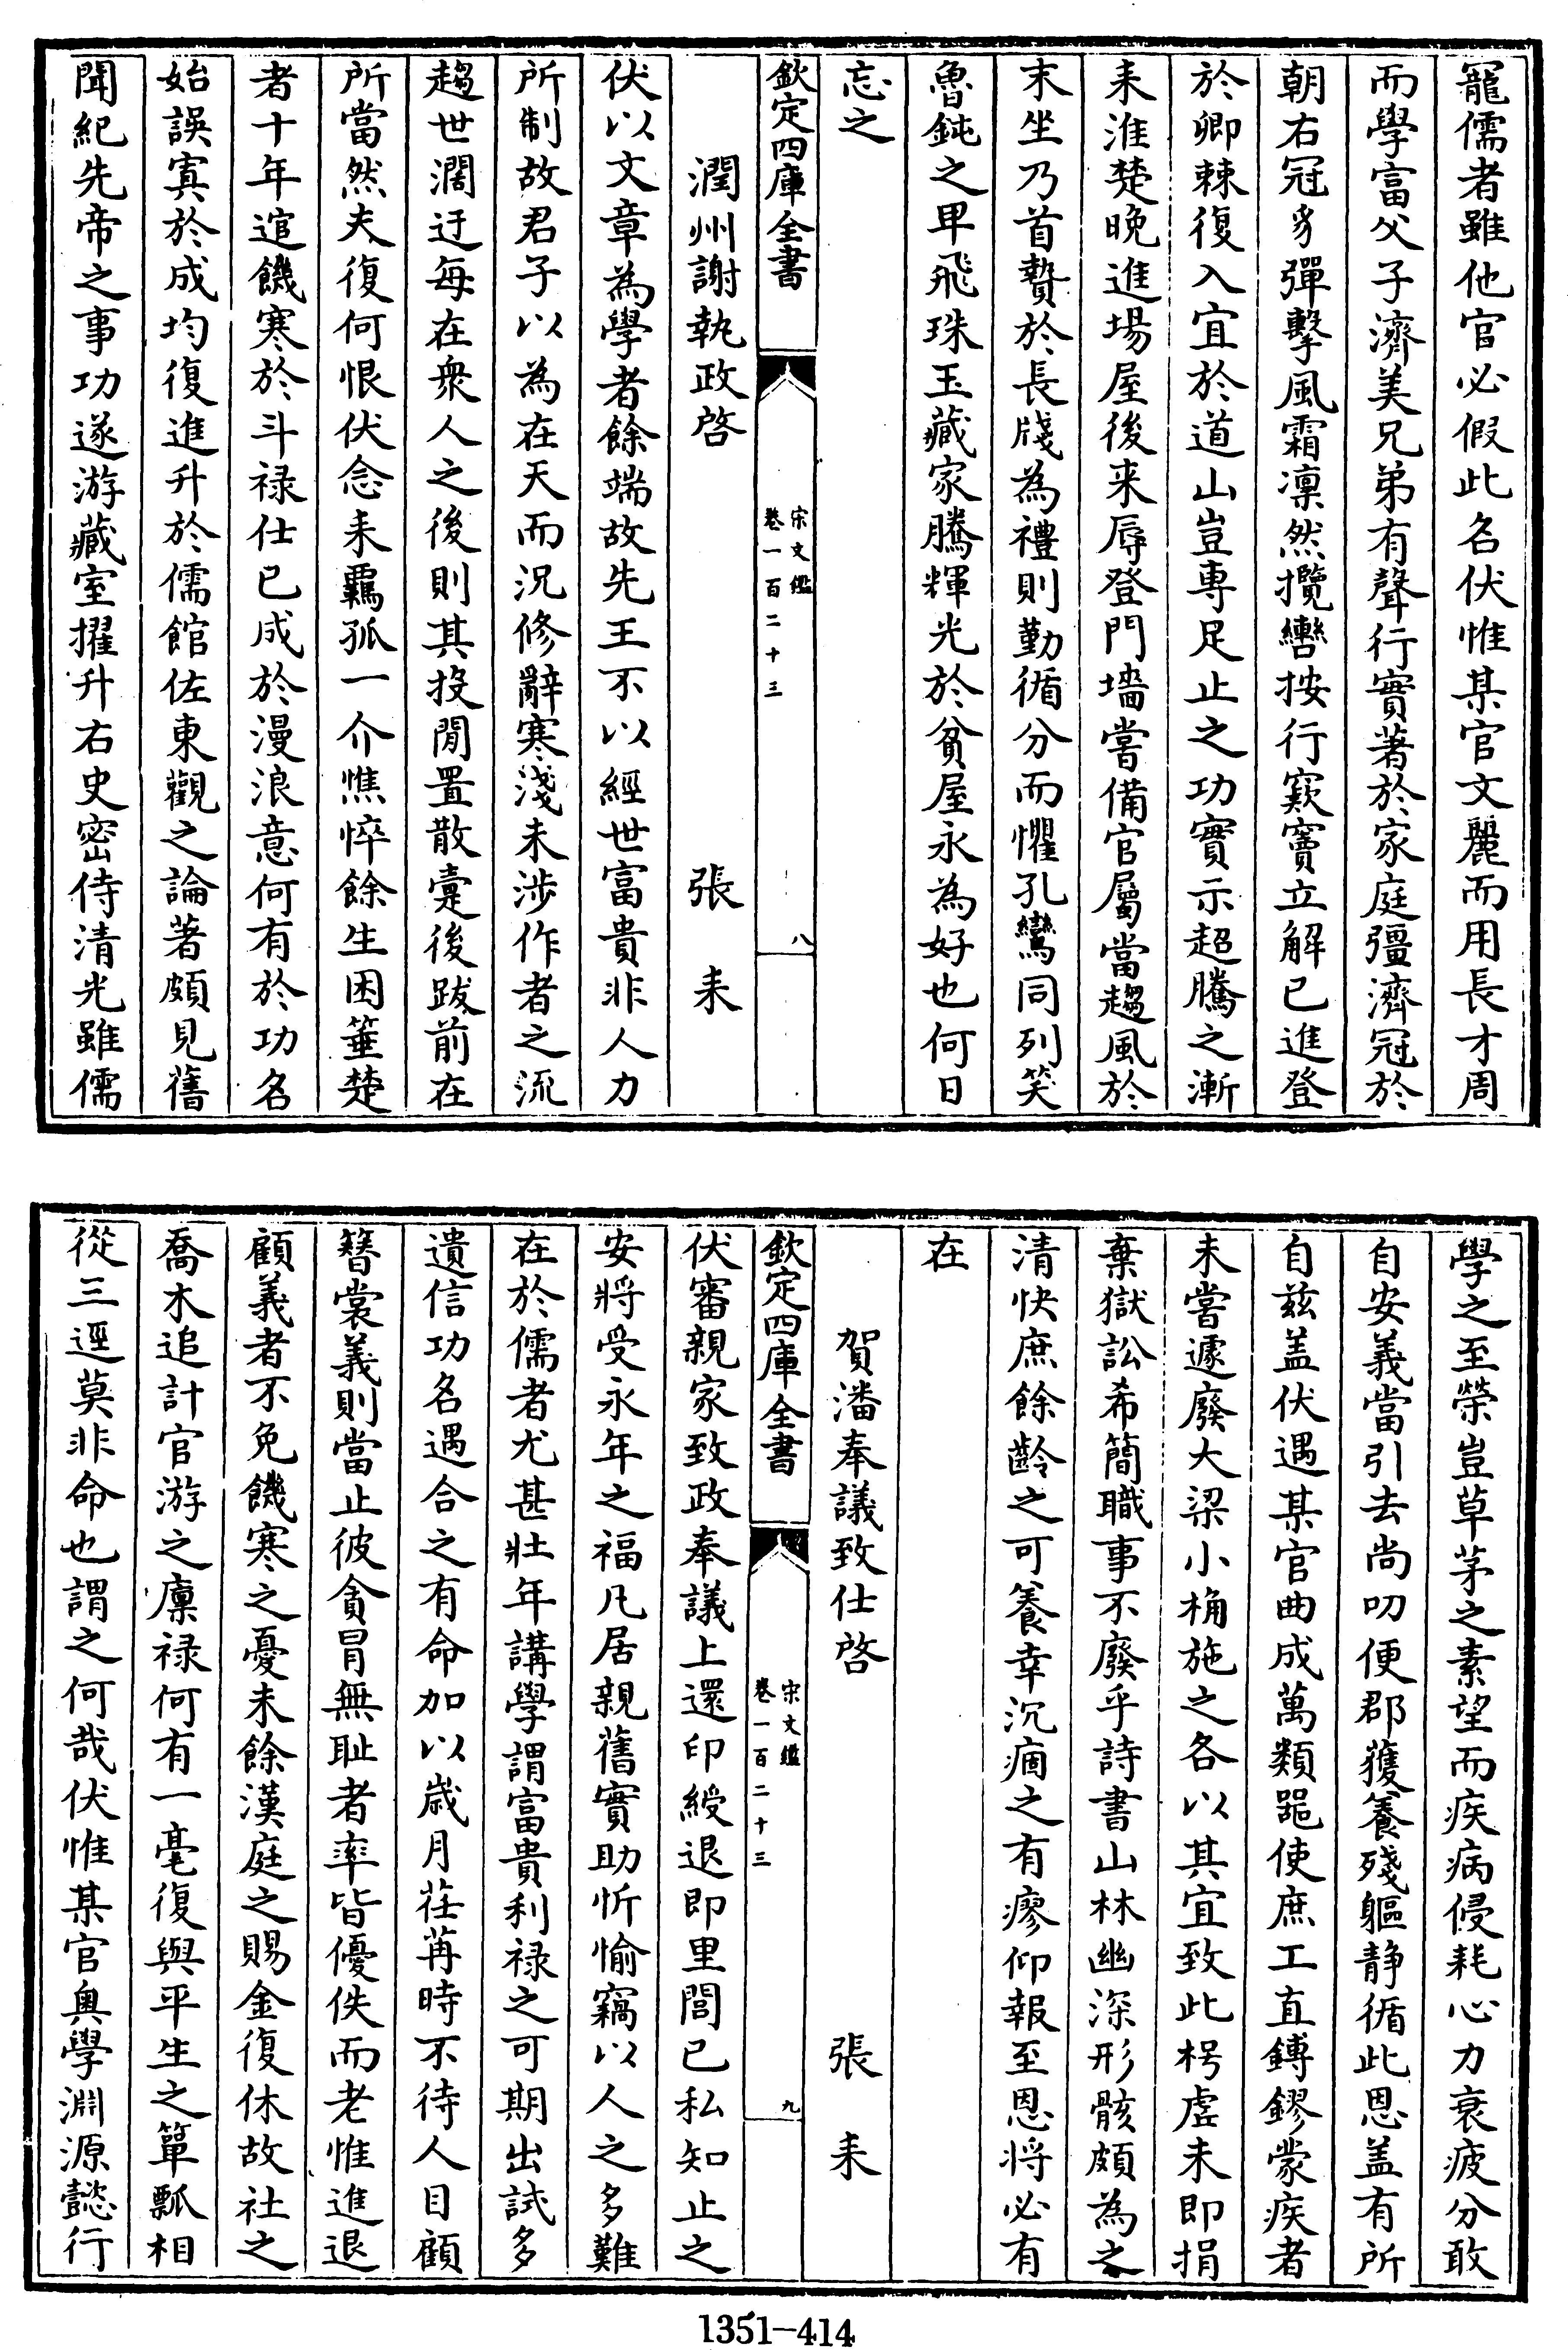 寵儒者雖他官必假此名伏惟某官文麗而用長才周
而學富父子濟美兄弟有聲行實著於家庭彊濟冠於
朝右冠豸彈擊風霜凜然攬轡按行窾竇立解已進登
於卿棘復入宜於道山豈專足止之功實示超騰之漸
耒淮楚晚進場屋後来辱登門墻嘗備官屬當趨風於
末坐乃首贄於長牋為禮則勤循分而懼孔鸞同列笑
魯鈍之卑飛珠玉藏家騰輝光於貧屋永為好也何日
忘之
欽定四庫全書
宋文鑑
卷一百二十三
八
潤州謝執政啓
張耒
伏以文章為學者餘端故先王不以經世富貴非人力
所制故君子以為在天而況修辭寒淺未涉作者之流
趨世濶迂每在衆人之後則其投閒置散寔後跋前在
所當然夫復何恨伏念耒羈孤一介憔悴餘生困箠楚
者十年逭饑寒於斗禄仕已成於漫浪意何有於功名
始誤寘於成均復進升於儒館佐東觀之論著頗見舊
聞紀先帝之事功遂游藏室擢升右史密侍清光雖儒
學之至榮豈草茅之素望而疾病侵耗心力衰疲分敢
自安義當引去尚叨便郡獲養殘軀静循此恩盖有所
自兹盖伏遇某官曲成萬類詭使庶工直鎛鏐蒙疾者
未嘗遽廢大梁小桷施之各以其宜致此枵虚未即捐
棄獄訟希簡職事不廢乎詩書山林幽深形骸頗為之
清快庶餘齡之可養幸沉痼之有瘳仰報至恩將必有
在
賀潘奉議致仕啓
張耒
欽定四庫全書
宋文鑑
卷一百二十三
九
伏審親家致政奉議上還印綬退即里閭已私知止之
安將受永年之福凡居親舊實助忻愉竊以人之多難
在於儒者尤甚壯年講學謂富貴利禄之可期出試多
遺信功名遇合之有命加以歳月荏苒時不待人目顧
簪裳義則當止彼貪冒無耻者率皆優佚而老惟進退
顧義者不免饑寒之憂未餘漢庭之賜金復休故社之
喬木追計官游之廩禄何有一毫復與平生之簞瓢相
從三逕莫非命也謂之何哉伏惟某官奥學淵源懿行
1351-414